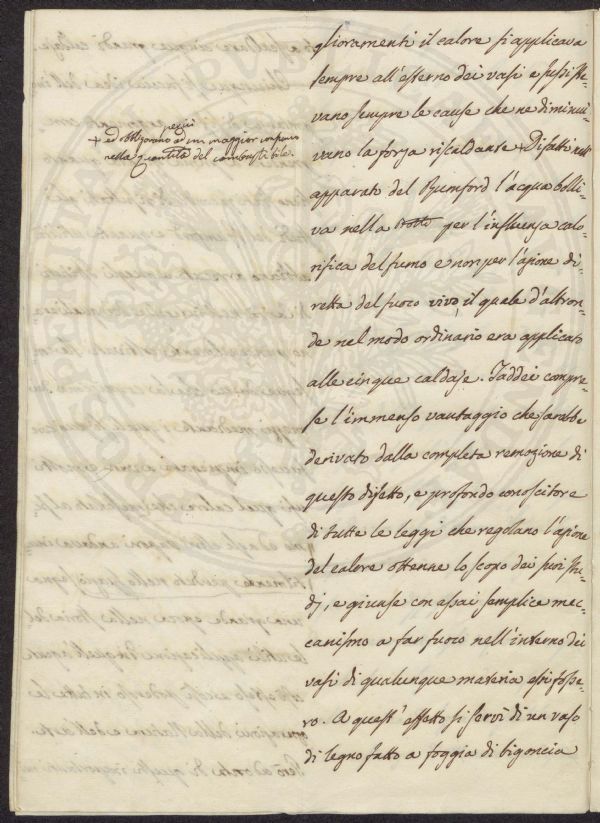 glioramenti il calore si applicava
sempre all'esterno dei vasi e sussiste-
vano sempre le cause che ne diminui-
vano la forza riscaldante + Difatti nell'
apparato del Rumford l'acqua bolli-
va nella botte per l'influenza calo-
rifica del fumo e non per l'azione di-
retta del fuoco vivo, il quale d'altron-
de nel modo ordinario era applicato
alle cinque caldaje. Taddei compre-
se l'immenso vantaggio che sarebbe
derivato dalla completa remozione di
questo difetto, e profondo conoscitore
di tutte le leggi che regolano l'azione
del calore ottenne lo scopo dei suoi stu-
dj, e giunse con assai semplice mec-
canismo a far fuoco nell'interno dei
vasi di qualunque materia essi fosse-
ro. A quest'effetto si servì di un vaso
di legno fatto a foggia di bigoncia
+ ed obbligavano ad un maggior consumo
nella quantità del combustibile.